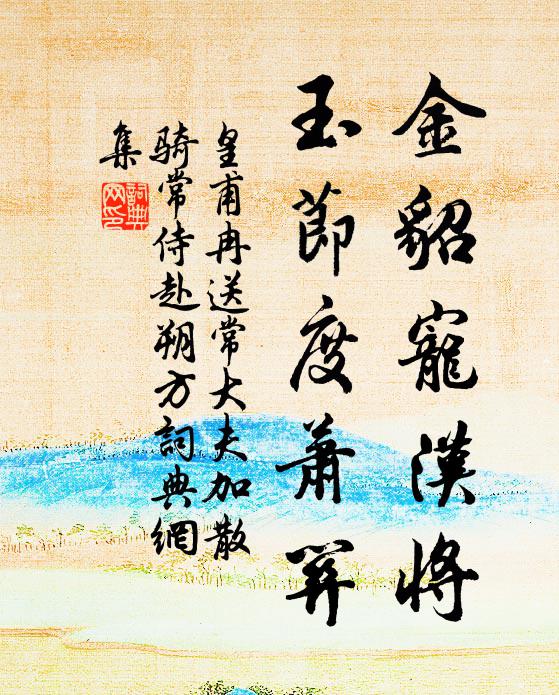 金貂寵漢將
玉節度蕭關
皇甫冉送常大夫加散
騎常侍赴朔方詞典網
集
詞典
网印